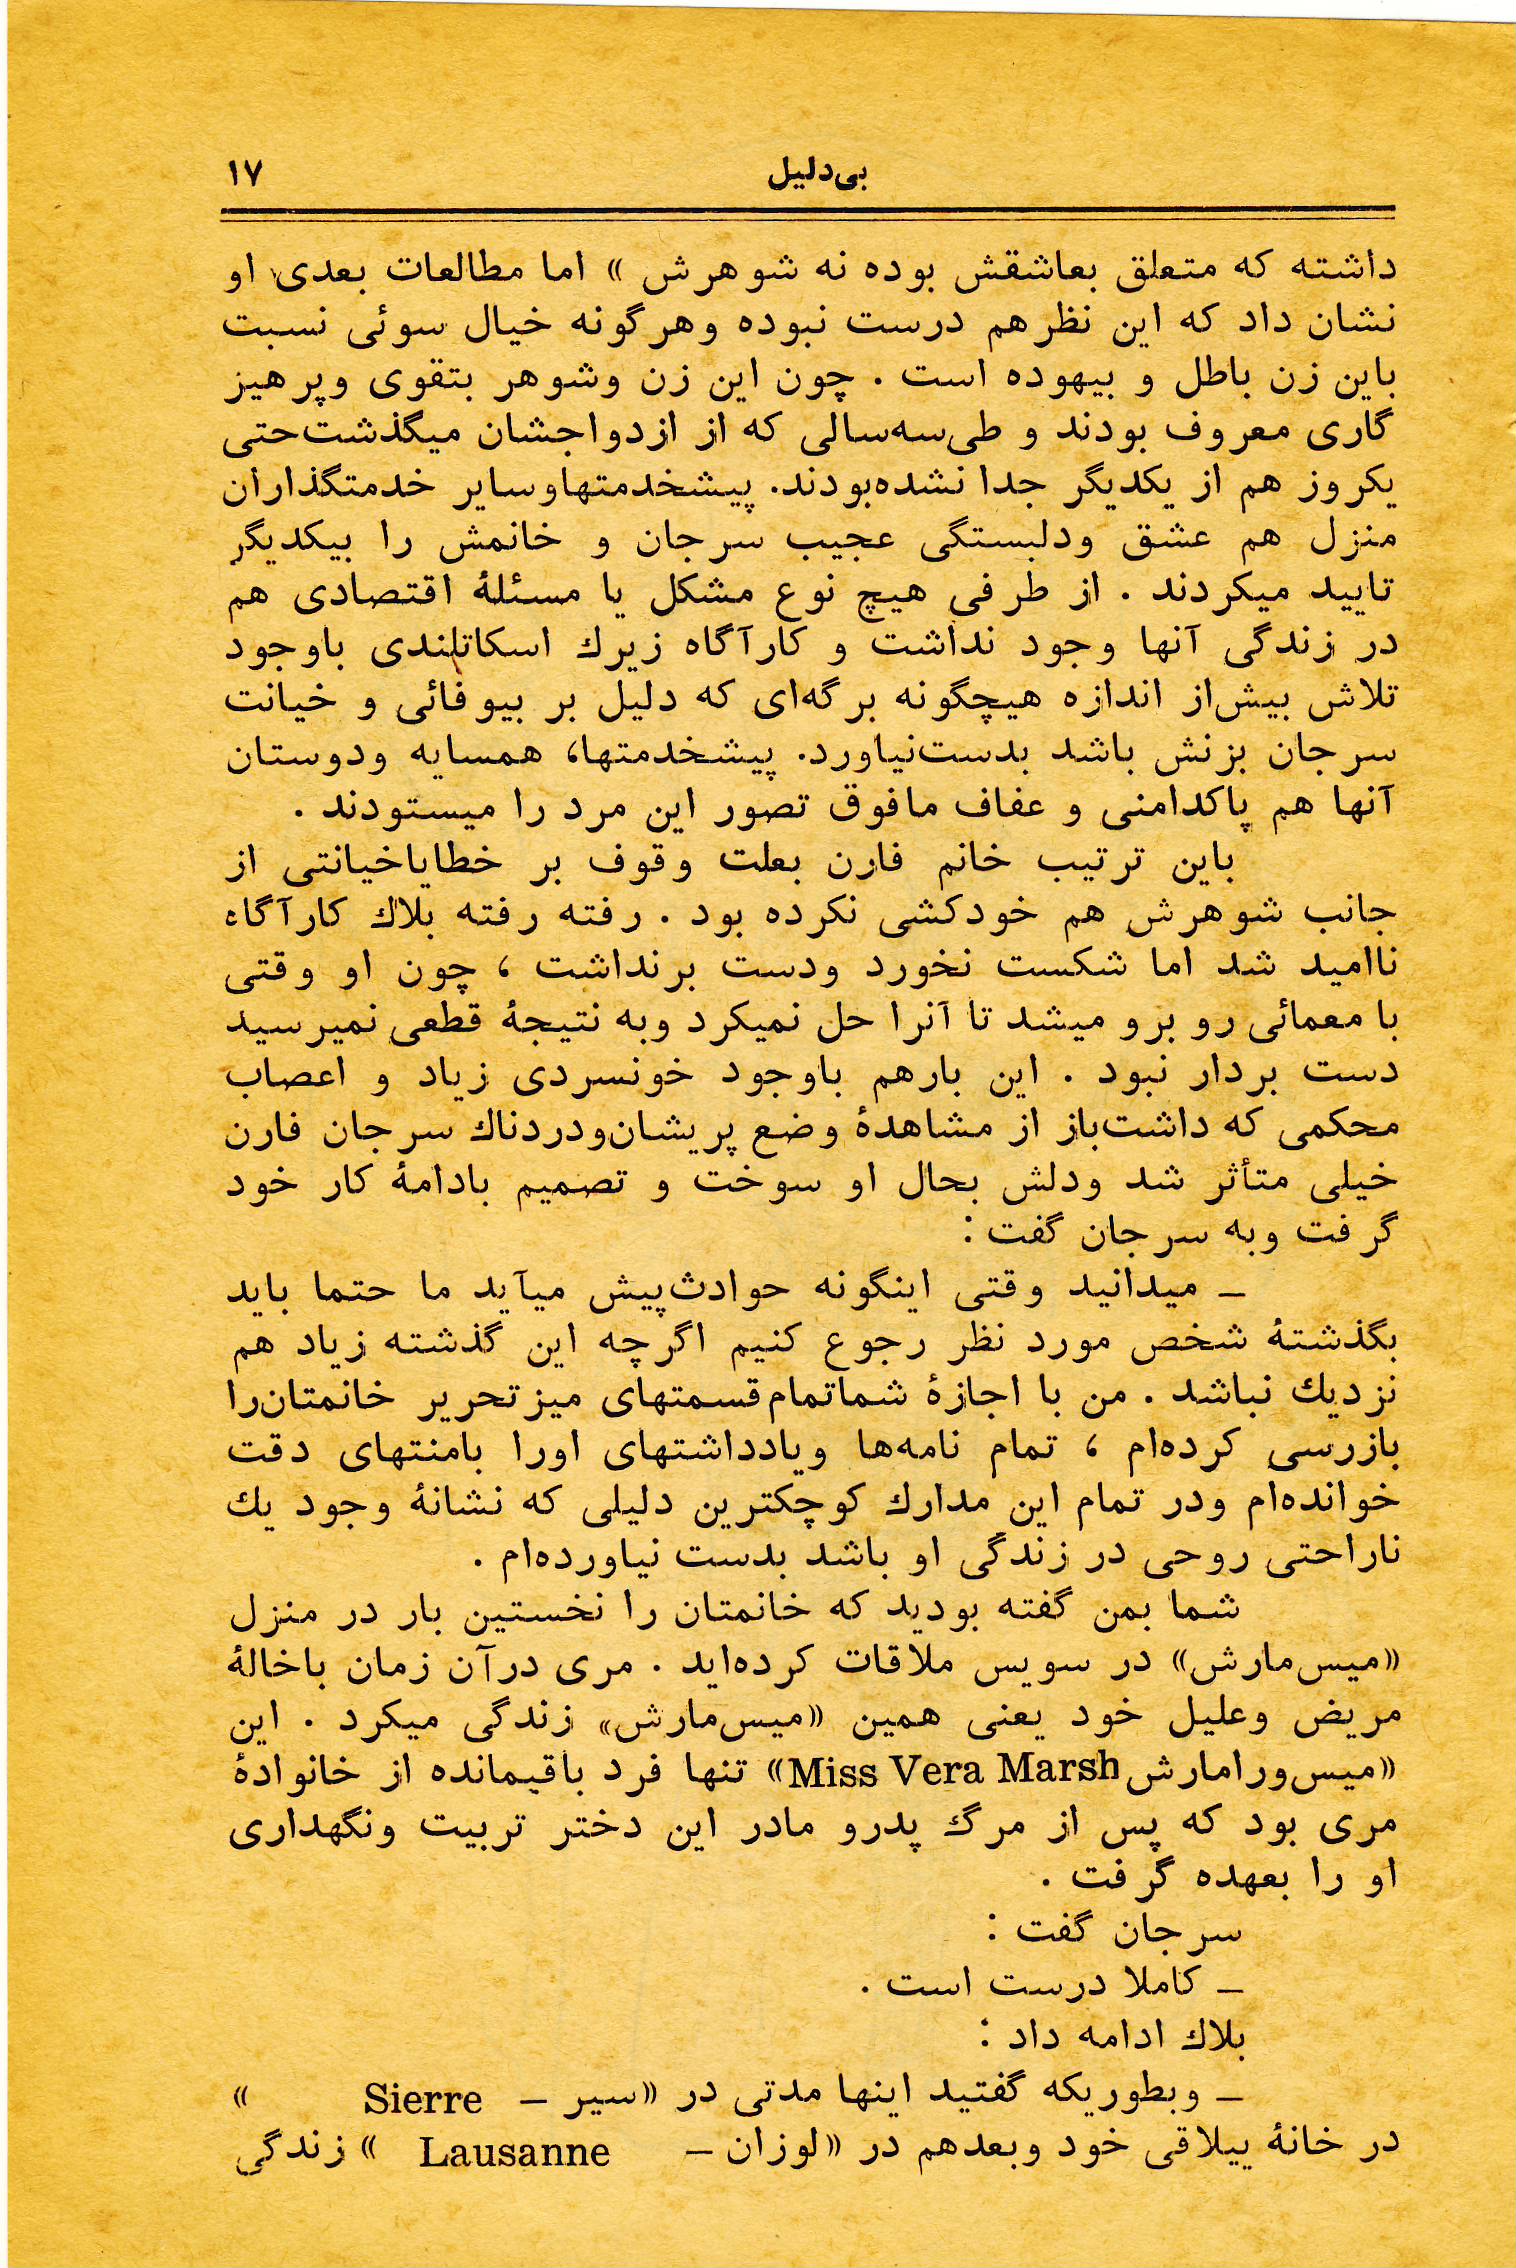 بی‌دلیل ۱۷
داشته که متعلق بعاشقش بوده نه شوهرش » اما مطالعات بعدی او
نشان داد که این نظرهم درست نبوده وهرگونه خیال سوئی نسبت
باین زن باطل و بیهوده است . چون این زن وشوهر بتقوی وپرهیز
گاری معروف بودند و طی‌سه‌سالی که از ازدواجشان میگذشت‌حتی
یکروز هم از یکدیگر جدا نشده‌بودند. پیشخدمتهاوسایر خدمتگذاران
منزل هم عشق ودلبستگی عجیب سرجان و خانمش را بیکدیگر
تایید میکردند . از طرفی هیچ نوع مشکل یا مسئلهٔ اقتصادی هم
در زندگی آنها وجود نداشت و کارآگاه زیرك اسکاتلندی باوجود
تلاش بیش‌از اندازه هیچگونه برگه‌ای که دلیل بر بیوفائی و خیانت
سرجان بزنش باشد بدست‌نیاورد. پیشخدمتها، همسایه ودوستان
آنها هم پاکدامنی و عفاف مافوق تصور این مرد را میستودند .
باین ترتیب خانم فارن بعلت وقوف بر خطایاخیانتی از
جانب شوهرش هم خودکشی نکرده بود . رفته رفته بلاك کارآگاه
ناامید شد اما شکست نخورد ودست برنداشت ، چون او وقتی
با معمائی روبرو میشد تا آنرا حل نمیکرد وبه نتیجهٔ قطعی نمیرسید
دست بردار نبود . این بارهم باوجود خونسردی زیاد و اعصاب
محکمی که داشت‌باز از مشاهدهٔ وضع پریشان‌ودردناك سرجان فارن
خیلی متأثر شد ودلش بحال او سوخت و تصمیم بادامهٔ کار خود
گرفت وبه سرجان گفت :
ـ میدانید وقتی اینگونه حوادث‌پیش میآید ما حتما باید
بگذشتهٔ شخص مورد نظر رجوع کنیم اگرچه این گذشته زیاد هم
نزدیك نباشد . من با اجازهٔ شماتمام‌قسمتهای میزتحریر خانمتان‌را
بازرسی کرده‌ام ، تمام نامه‌ها ویادداشتهای اورا بامنتهای دقت
خوانده‌ام ودر تمام این مدارك کوچکترین دلیلی که نشانهٔ وجود یك
ناراحتی روحی در زندگی او باشد بدست نیاورده‌ام .
شما بمن گفته بودید که خانمتان را نخستین بار در منزل
«میس‌مارش» در سویس ملاقات کرده‌اید . مری درآن زمان باخالهٔ
مریض وعلیل خود یعنی همین «میس‌مارش» زندگی میکرد . این
«میس‌ورامارش Miss Vera Marsh» تنها فرد باقیمانده از خانوادهٔ
مری بود که پس از مرگ پدرو مادر این دختر تربیت ونگهداری
او را بعهده گرفت .
سرجان گفت :
ـ کاملا درست است .
بلاك ادامه داد :
ـ وبطوریکه گفتید اینها مدتی در «سیر ـ Sierre »
در خانهٔ ییلاقی خود وبعدهم در «لوزان ـ Lausanne » زندگی